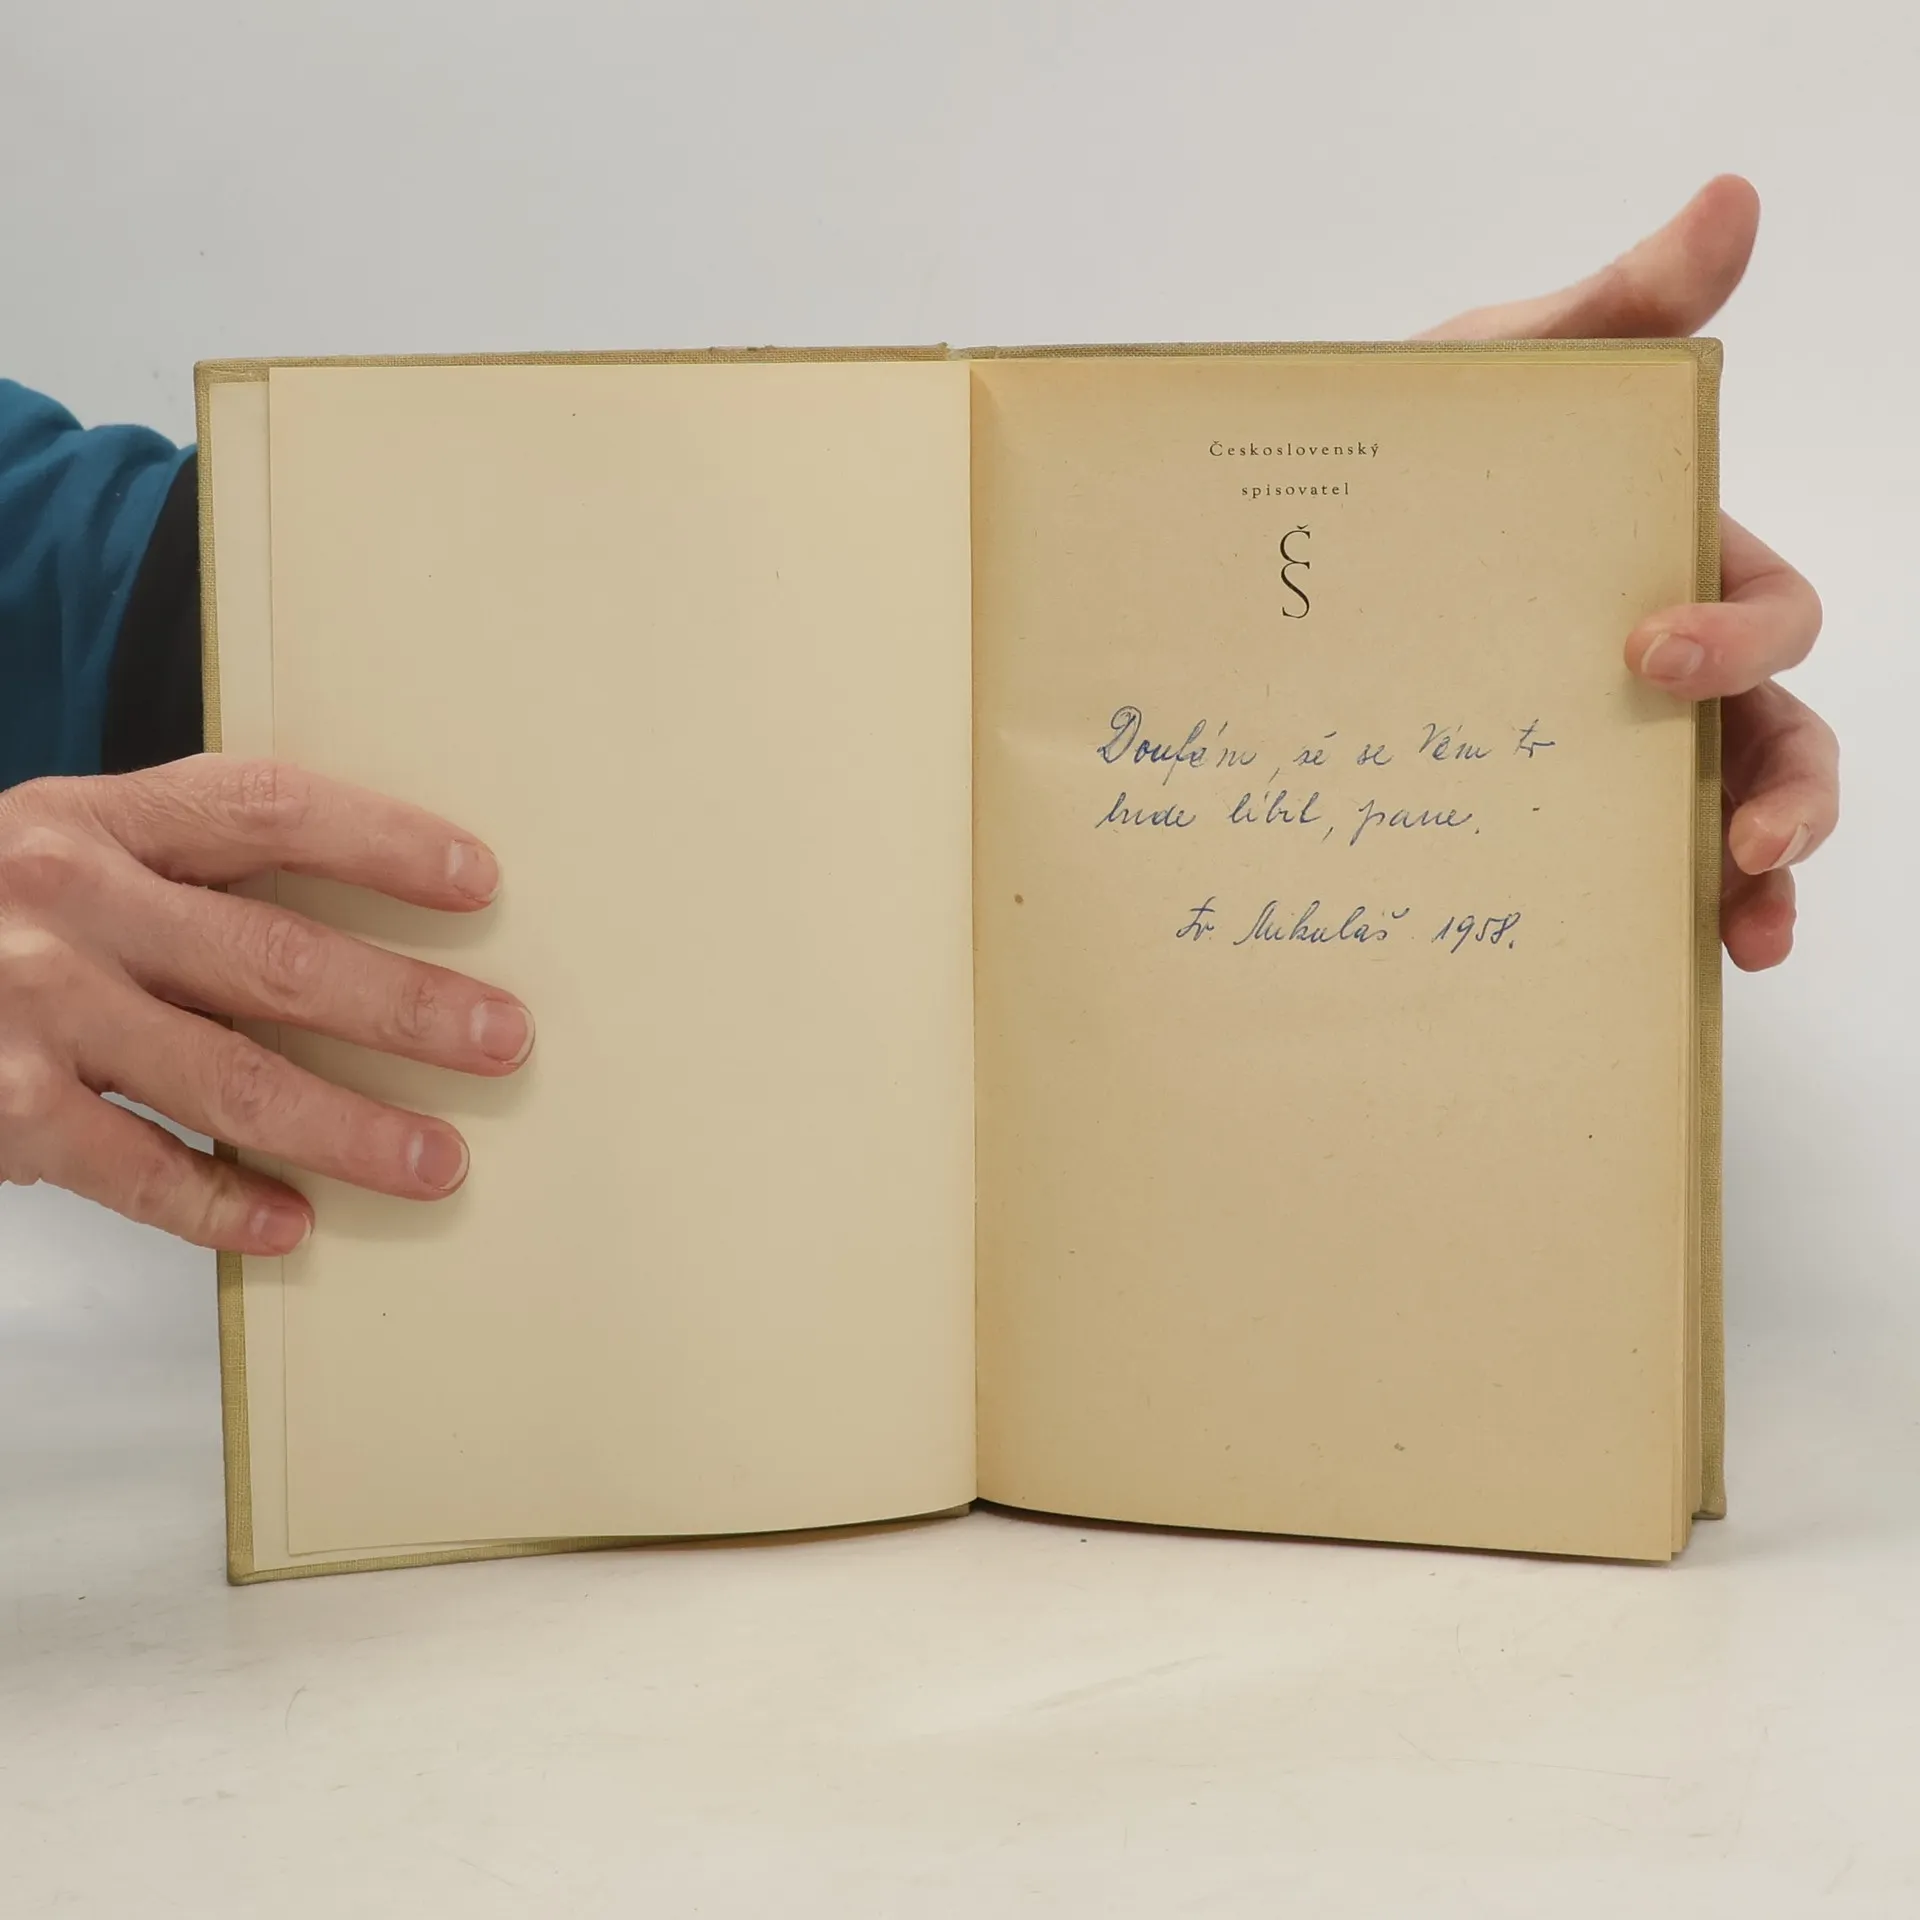 Československý
spisovatel
ČS
Doufám, že se Vám to
bude líbit, pane.
Sv. Mikuláš 1958.